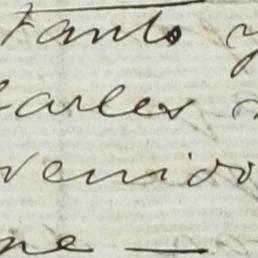 tanto y
carles
venido
ne —